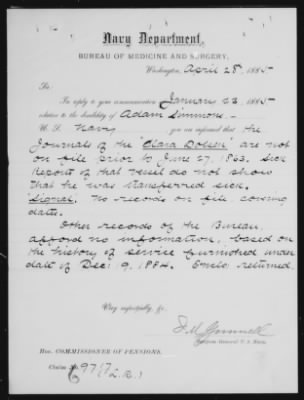 Navy Department,
BUREAU OF MEDICINE AND SURGERY,
Washington, April 28, 1885
Sir:
In reply to your communication January 23, 1885
relative to the disability of Adam Simmons
U. S. Navy you are informed that the
Journals of the "Clara Dolsen" are not
on file prior to June 27, 1863. Sick
Report of that vessel do not show
that he was transferred sick.
Signal. No records on file covering
dates.
Other records of the Bureau,
afford no information, based on
the history of service furnished under
date of Dec. 9, 1884. Encls. returned.
Very respectfully,
Surgeon General U. S. Navy.
Hon. COMMISSIONER OF PENSIONS.
Claim No.